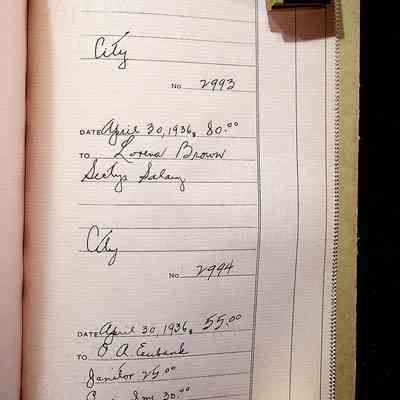 City
No 2993
DATE April 30, 1936, $ 80.00
TO Lorena Brown
Sectys Salary
City
No 2994
DATE April 30, 1936, $ 55.00
TO O A Eubank
Janitor 25.00
30.00